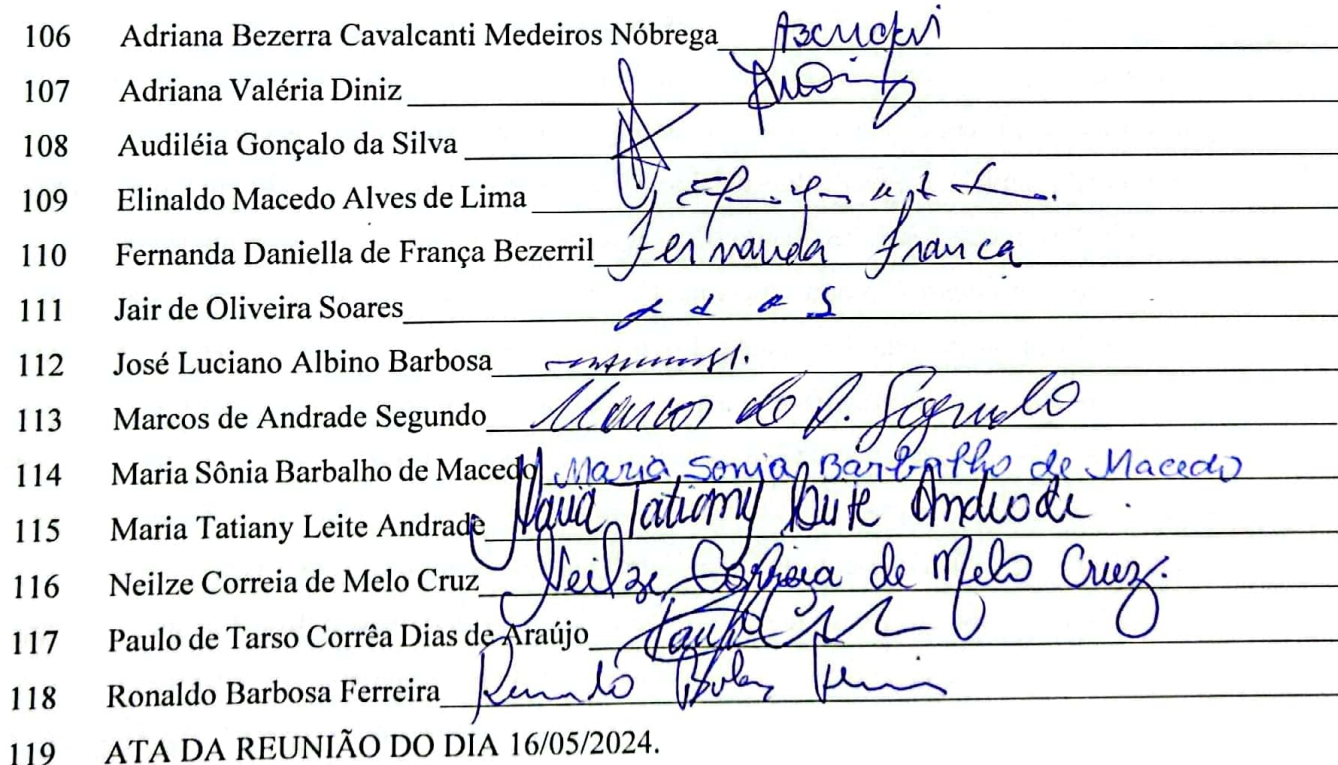 106 Adriana Bezerra Cavalcanti Medeiros Nóbrega
107 Adriana Valéria Diniz
108 Audiléia Gonçalo da Silva
109 Elinaldo Macedo Alves de Lima
110 Fernanda Daniella de França Bezerril Fernanda França
111 Jair de Oliveira Soares
112 José Luciano Albino Barbosa
113 Marcos de Andrade Segundo Marcos de A. Segundo
114 Maria Sônia Barbalho de Macedo Maria Sonia Barbalho de Macedo
115 Maria Tatiany Leite Andrade Maria Tatiany Leite Andrade.
116 Neilze Correia de Melo Cruz Neilze Correia de Melo Cruz.
117 Paulo de Tarso Corrêa Dias de Araújo
118 Ronaldo Barbosa Ferreira
119 ATA DA REUNIÃO DO DIA 16/05/2024.